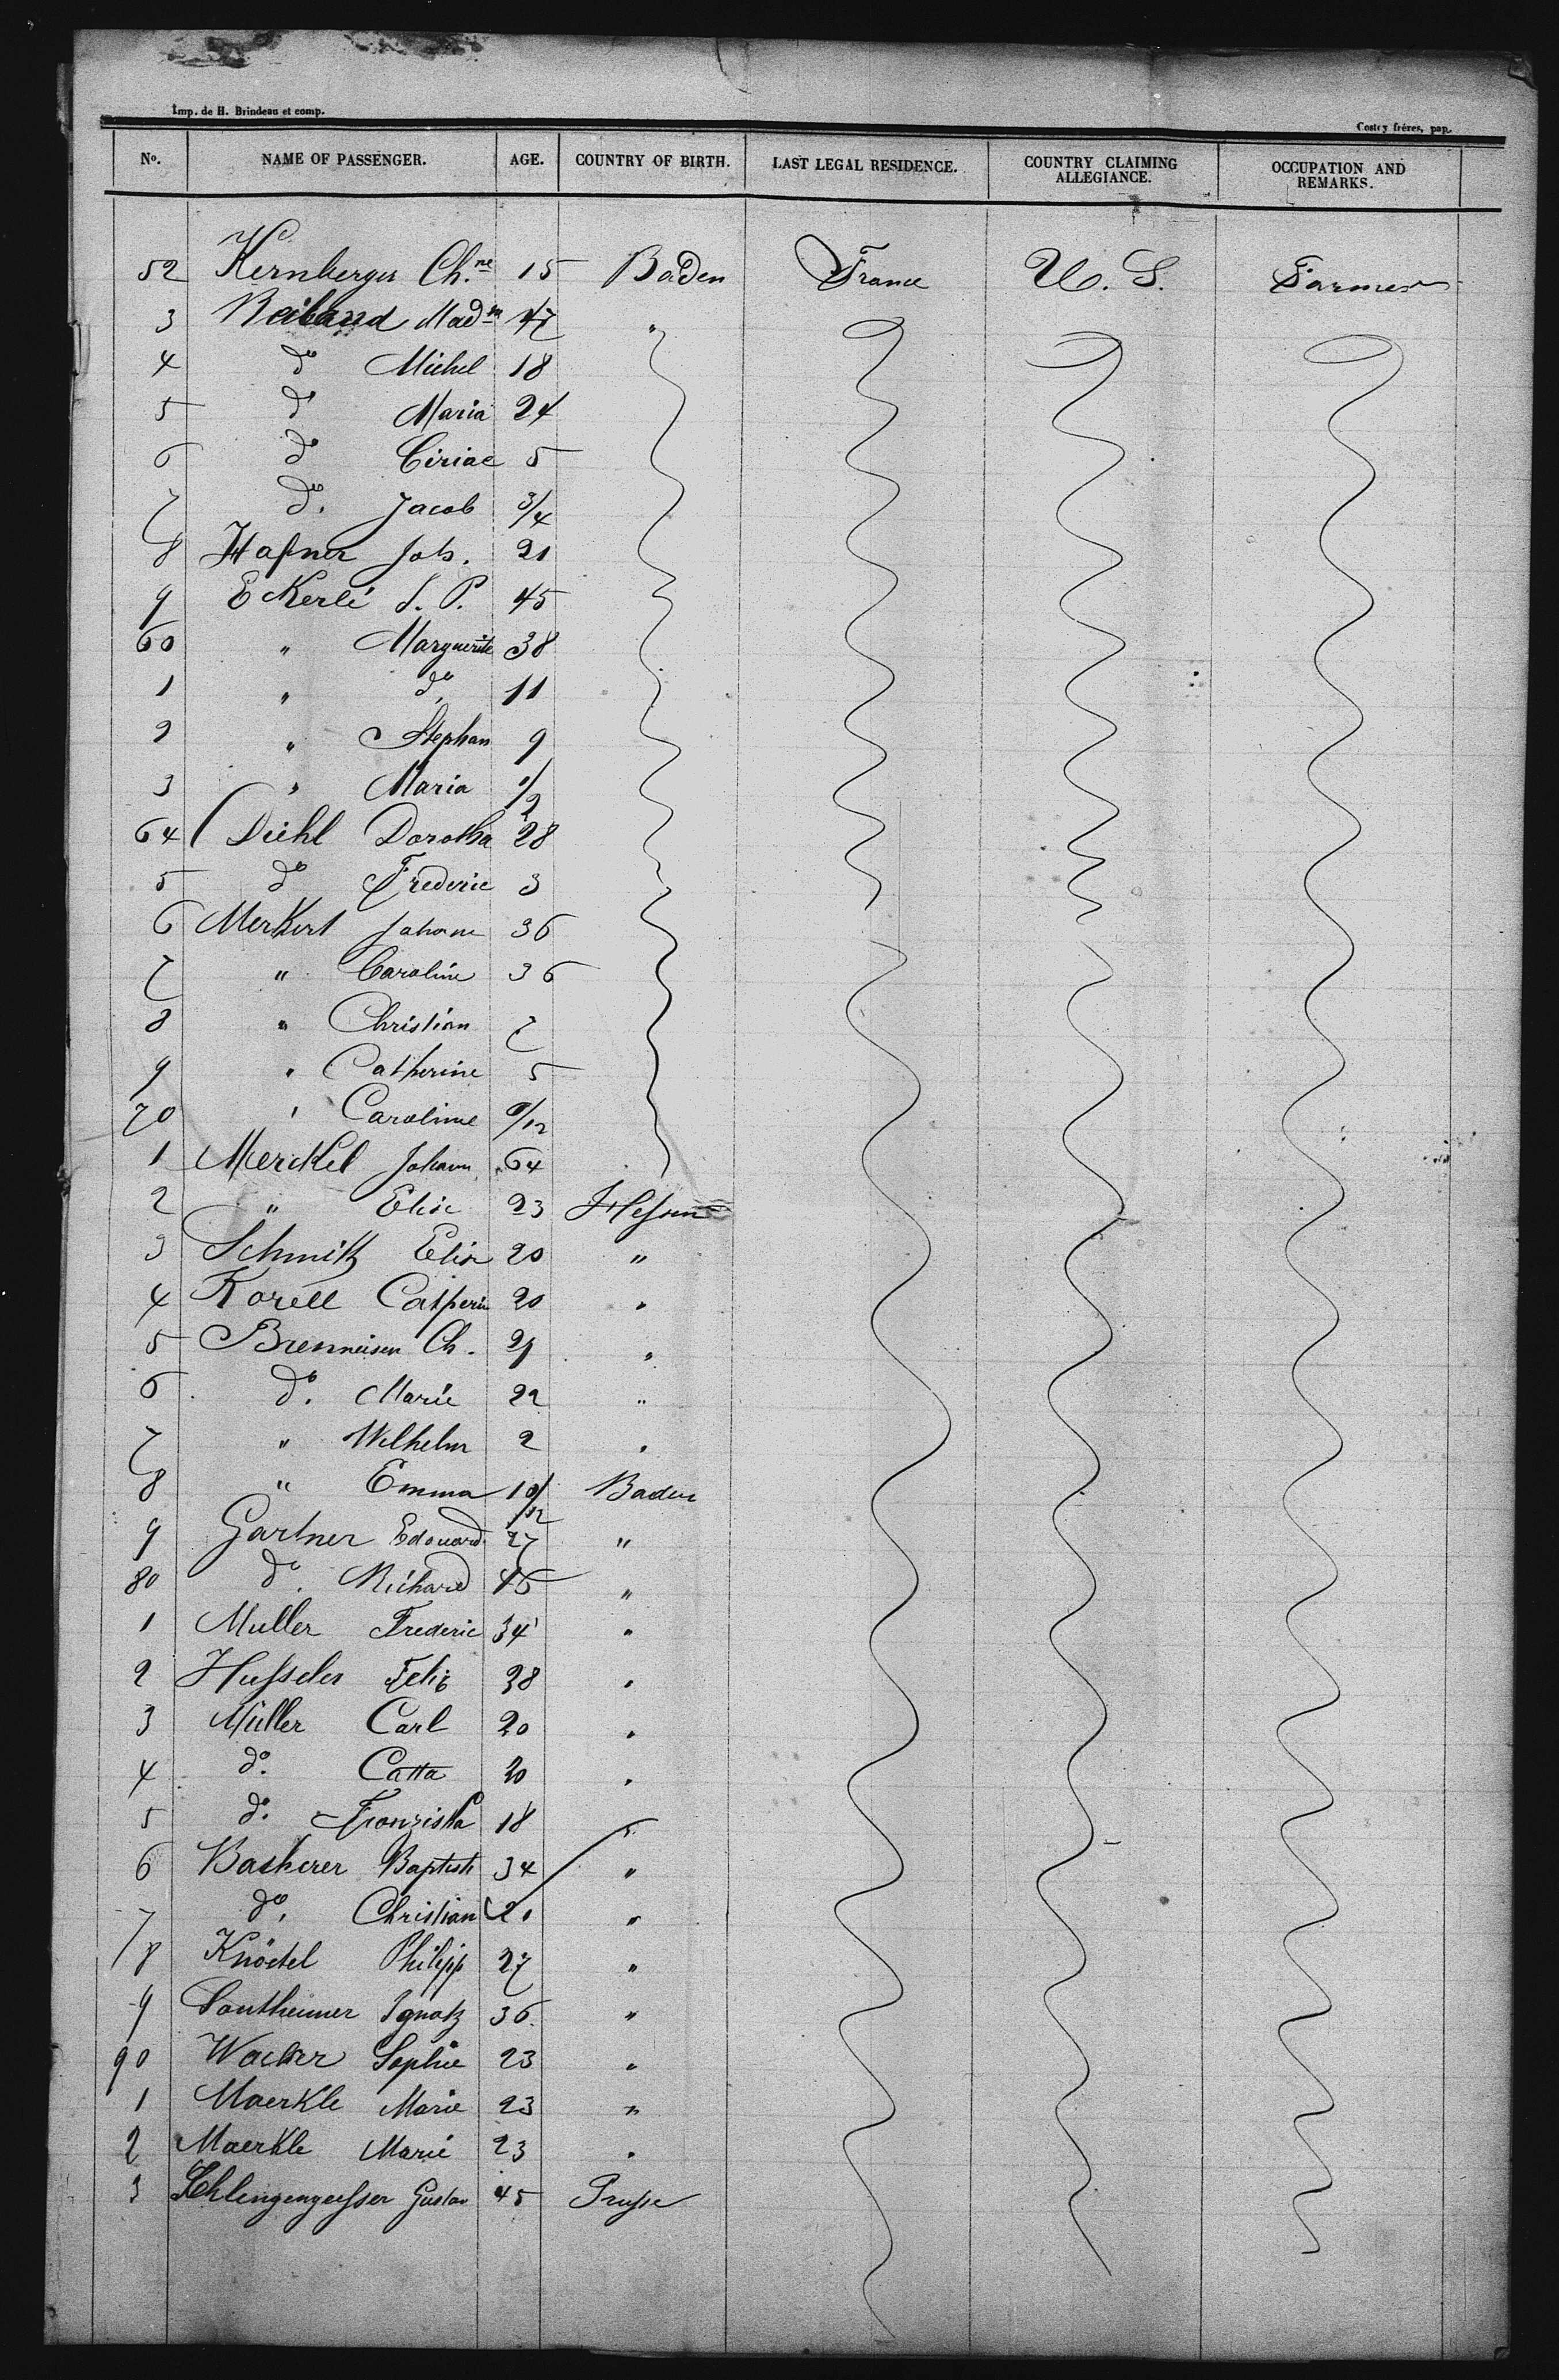 Imp. de H. Brindeau et comp.
Costey frères, pap.
No. NAME OF PASSENGER. AGE. COUNTRY OF BIRTH. LAST LEGAL RESIDENCE. COUNTRY CLAIMING ALLEGIANCE. OCCUPATION AND REMARKS.
52 Kernberger Ch.ne 15 Baden France U. S. Farmer
3 Beiband Mad 47 "
4 do Michel 18
5 do Maria 24
6 do Ciriac 5
7 do. Jacob 3/4
8 Hafner Joh. 21
9 Eckerlé J. P. 45
60 " Marguerite 38
1 " do 11
2 " Stephan 9
3 " Maria 1/2
64 Diehl Dorotha 28
5 do Frederic 3
6 Merkert Johann 36
7 " Caroline 36
8 " Christian 7
9 " Catherine 5
70 " Caroline /12
1 Merckel Johann 64
2 " Elise 23 Hessen
3 Schmitz Elise 20 "
4 Korell Catherin 20 "
5 Brenneisen Ch. "
6 do. Marie 22 "
7 " Wilhelm 2 "
8 " Emma 10/12 Baden
9 Gartner Edouard 27 "
80 do. Richard 46 "
1 Muller Frederic 34 "
2 Hussler Felix 38 "
3 Müller Carl 20 "
4 do. Catta 20 "
5 do. Franziska 18 "
6 Bacherer Baptist 34 "
7 do. Christian "
8 Knödel Philipp 27 "
9 Sontheimer Ignatz 36. "
90 Wacker Sophie 23 "
1 Maerkle Marie 23 "
2 Maerkle Marie 23 "
3 Gustav 45 Prusse